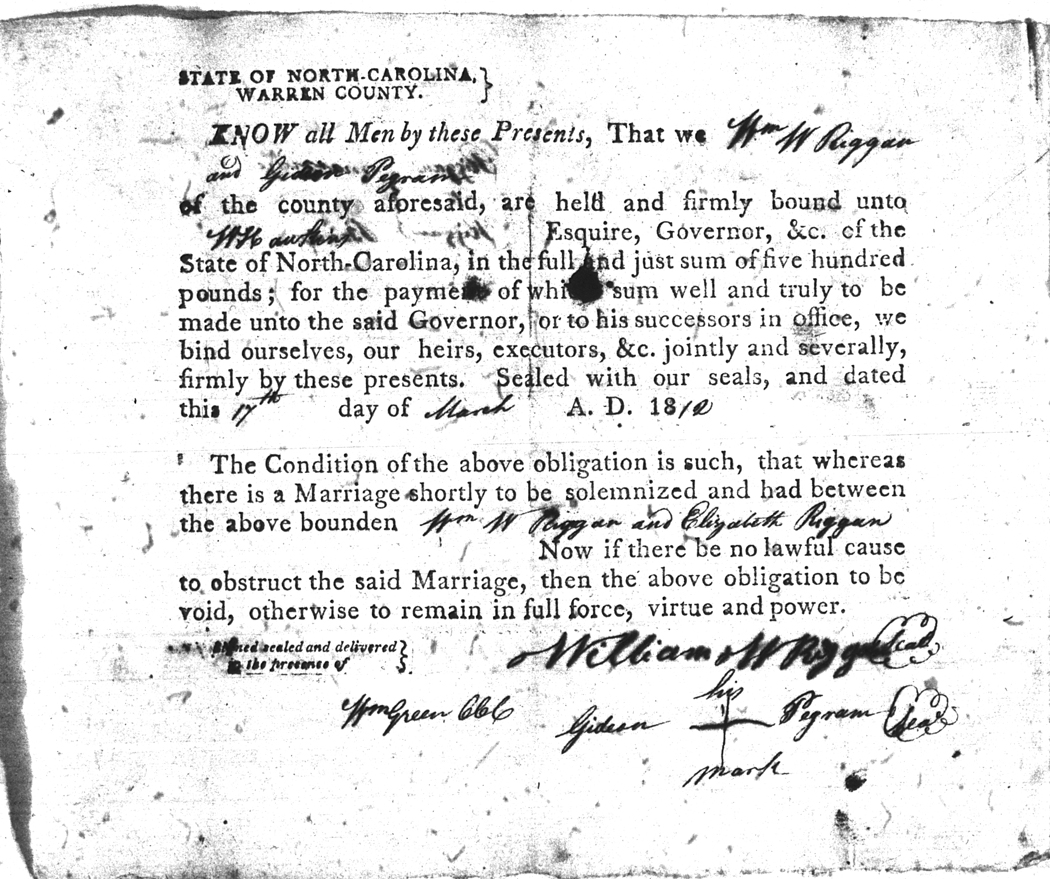 STATE OF NORTH-CAROLINA,
WARREN COUNTY.
KNOW all Men by these Presents, That we Wm W Riggan
and Gideon Pegram
of the county aforesaid, are held and firmly bound unto
W Hawkins Esquire, Governor, &c. of the
State of North-Carolina, in the full and just sum of five hundred
pounds; for the payment of which sum well and truly to be
made unto the said Governor, or to his successors in office, we
bind ourselves, our heirs, executors, &c. jointly and severally,
firmly by these presents. Sealed with our seals, and dated
this 17th day of March A. D. 1812
The Condition of the above obligation is such, that whereas
there is a Marriage shortly to be solemnized and had between
the above bounden Wm W Riggan and Elizabeth Riggan
Now if there be no lawful cause
to obstruct the said Marriage, then the above obligation to be
void, otherwise to remain in full force, virtue and power.
Signed sealed and delivered
in the presence of
William W Riggan Seal
his
Wm Green CCC Gideon + Pegram Seal
mark